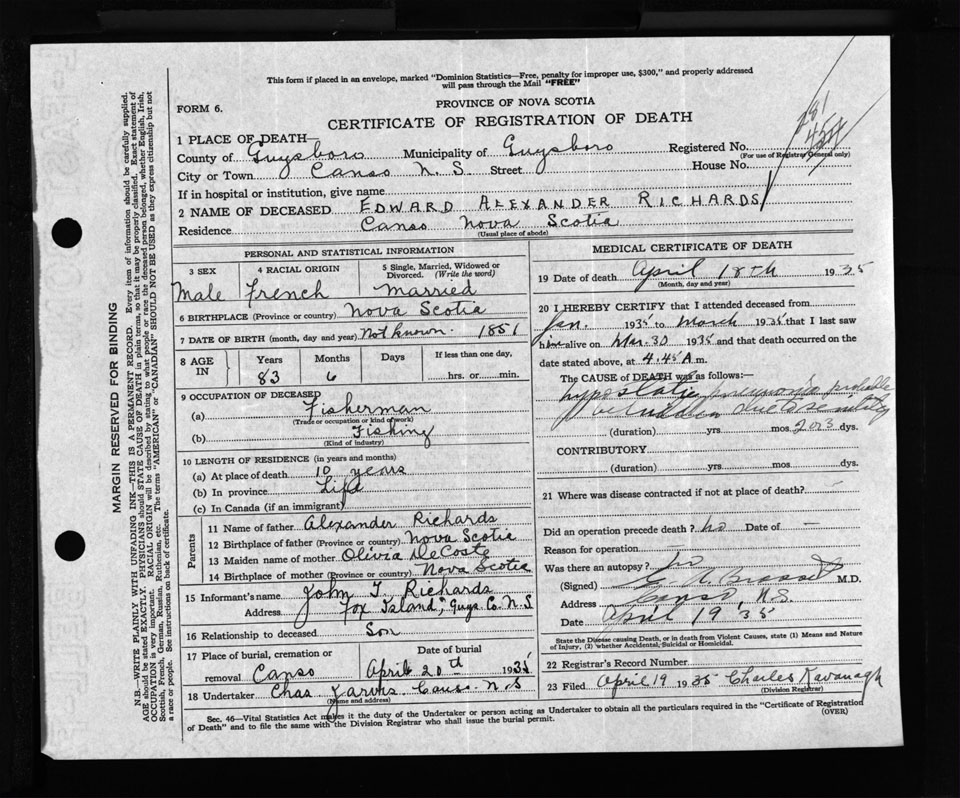 This form if placed in an envelope, marked "Dominion Statistics—Free, penalty for improper use, $300," and properly addressed
will pass through the Mail "FREE"
PROVINCE OF NOVA SCOTIA
FORM 6.
CERTIFICATE OF REGISTRATION OF DEATH
1 PLACE OF DEATH—
County of Guysboro Municipality of Guysboro Registered No.
(For use of Registrar General only)
City or Town Canso N. S. Street House No.
If in hospital or institution, give name
2 NAME OF DECEASED EDWARD ALEXANDER RICHARDS
Residence Canso Nova Scotia
(Usual place of abode)
PERSONAL AND STATISTICAL INFORMATION
3 SEX Male
4 RACIAL ORIGIN French
5 Single, Married, Widowed or Divorced. (Write the word) Married
6 BIRTHPLACE (Province or country) Nova Scotia
7 DATE OF BIRTH (month, day and year) Not known. 1851
8 AGE IN Years Months Days If less than one day,
83 6 hrs. or min.
9 OCCUPATION OF DECEASED
(a) Fisherman
(Trade or occupation or kind of work)
(b) Fishing
(Kind of industry)
10 LENGTH OF RESIDENCE (in years and months)
(a) At place of death 10 years
(b) In province Life
(c) In Canada (if an immigrant)
Parents
11 Name of father Alexander Richards
12 Birthplace of father (Province or country) Nova Scotia
13 Maiden name of mother Olivia DeCoste
14 Birthplace of mother (Province or country) Nova Scotia
15 Informant's name John T. Richards
Address Fox Island, Guys. Co. N. S
16 Relationship to deceased Son
17 Place of burial, cremation or removal Canso
Date of burial April 20th 1935
18 Undertaker Chas Jarvis. Canso. N. S
(Name and address)
MEDICAL CERTIFICATE OF DEATH
19 Date of death April 18th 1935
(Month, day and year)
20 I HEREBY CERTIFY that I attended deceased from
Jan. 1935 to March 1935 that I last saw
him alive on Mar. 30 1935 and that death occurred on the
date stated above, at 4.45 A m.
The CAUSE of DEATH was as follows:—
hypostatic pneumonia probable
due to senility
(duration) yrs. mos. 2 or 3 dys.
CONTRIBUTORY
(duration) yrs. mos. dys.
21 Where was disease contracted if not at place of death? —
Did an operation precede death? no Date of —
Reason for operation —
Was there an autopsy? no
(Signed) M.D.
Address Canso, N.S.
Date April 19 '35
State the Disease causing Death, or in death from Violent Causes, state (1) Means and Nature
of Injury, (2) whether Accidental, Suicidal or Homicidal.
22 Registrar's Record Number
23 Filed April 19 1935 Charles Kavanagh
(Division Registrar)
Sec. 46—Vital Statistics Act makes it the duty of the Undertaker or person acting as Undertaker to obtain all the particulars required in the "Certificate of Registration
of Death" and to file the same with the Division Registrar who shall issue the burial permit.
(OVER)
MARGIN RESERVED FOR BINDING
N.B.—WRITE PLAINLY WITH UNFADING INK—THIS IS A PERMANENT RECORD. Every item of information should be carefully supplied.
AGE should be stated EXACTLY. PHYSICIANS should STATE CAUSE OF DEATH in plain terms, so that it may be properly classified. Exact statement of
OCCUPATION is very important. RACIAL ORIGIN will be described by stating to what people or race the deceased person belonged, whether English, Irish,
Scottish, French, German, Russian, Ruthenian, etc. The terms "AMERICAN" or "CANADIAN" SHOULD NOT BE USED as they express citizenship but not
a race or people. See instructions on back of certificate.